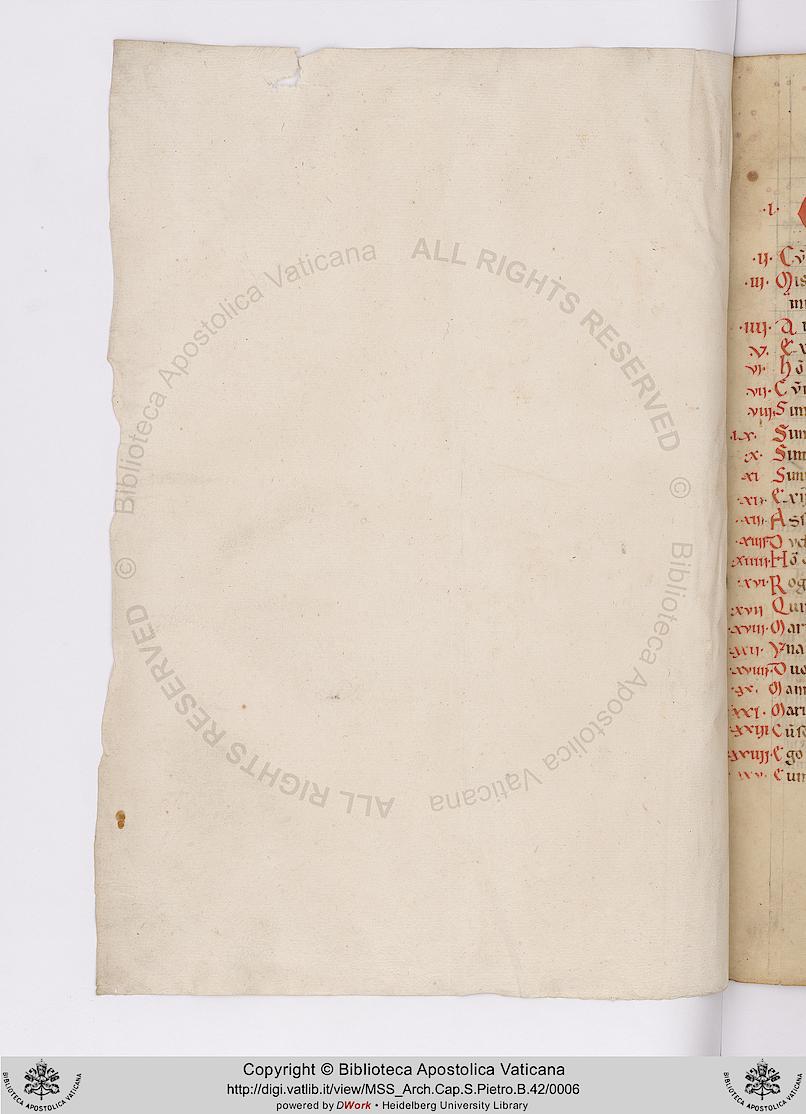 Biblioteca Apostolica Vaticana ALL RIGHTS RESERVED ©
Biblioteca Apostolica Vaticana ALL RIGHTS RESERVED ©
·I·
·II· Cū
·III· Mis
·IIII· A
·V· Ex
·VI· hō
·VII· Cū
·VIII· Sim
·IX· Sim
·X· Sim
·XI· Sim
·XII· Exij
·XIII· Ass
hō
·XVI· Rog
·XVII· Qui
·XVIII· Mar
Yna
Duo
·XX· Mam
·XXI· Mari
·XXIII· Cūs
·XXIIII· Ego
·XXV· Cum
Copyright © Biblioteca Apostolica Vaticana
http://digi.vatlib.it/view/MSS_Arch.Cap.S.Pietro.B.42/0006
powered by DWork • Heidelberg University Library
BIBLIOTECA APOSTOLICA VATICANA
BIBLIOTECA APOSTOLICA VATICANA